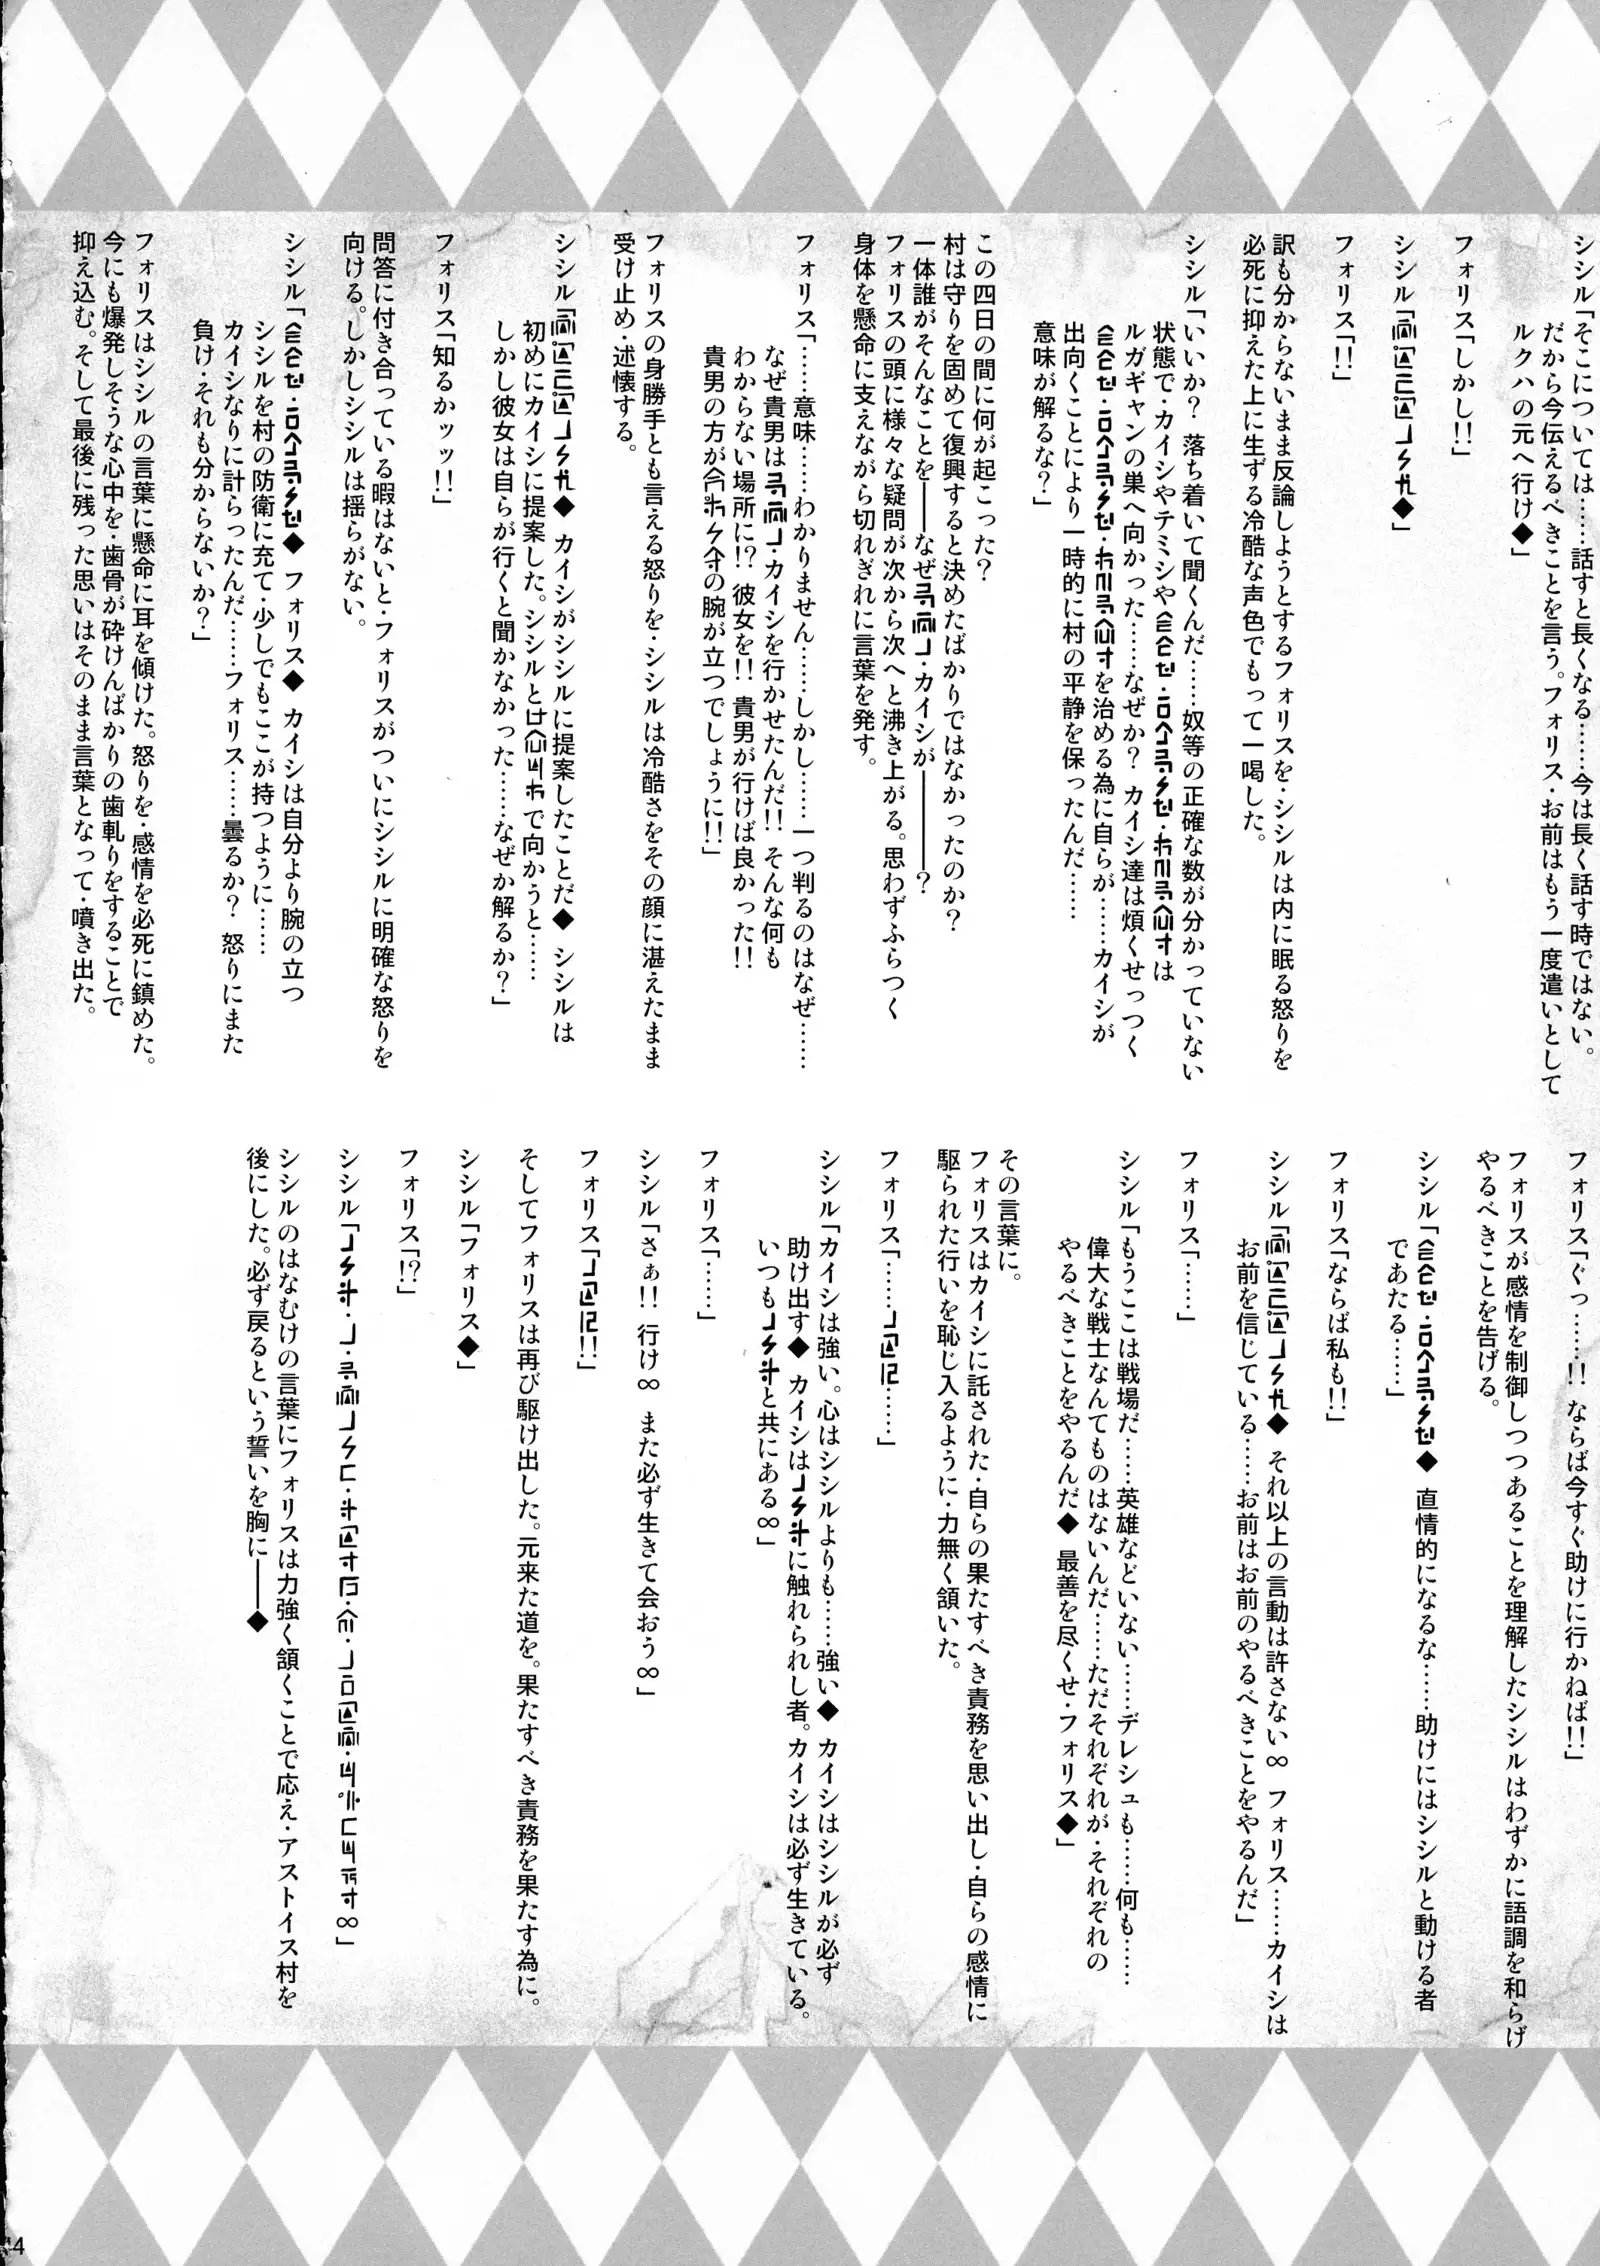 シシル「そこについては……話すと長くなる……今は長く話す時ではない。
だから今伝えるべきことを言う。フォリス・お前はもう一度遣いとして
ルクハの元へ行け◆」
フォリス「しかし!!」
シシル「◆」
フォリス「!!」
訳も分からないまま反論しようとするフォリスを・シシルは内に眠る怒りを
必死に抑えた上に生ずる冷酷な声色でもって一喝した。
シシル「いいか？ 落ち着いて聞くんだ……奴等の正確な数が分かっていない
状態で・カイシやテミシや は
ルガギャンの巣へ向かった……なぜか？ カイシ達は煩くせっつく
を治める為に自らが……カイシが
出向くことにより一時的に村の平静を保ったんだ……
意味が解るな？」
この四日の間に何が起こった？
村は守りを固めて復興すると決めたばかりではなかったのか？
一体誰がそんなことを――なぜ ・カイシが――――？
フォリスの頭に様々な疑問が次から次へと沸き上がる。思わずふらつく
身体を懸命に支えながら切れぎれに言葉を発す。
フォリス「……意味……わかりません……しかし……一つ判るのはなぜ……
なぜ貴男は ・カイシを行かせたんだ!! そんな何も
わからない場所に!? 彼女を!! 貴男が行けば良かった!!
貴男の方が の腕が立つでしょうに!!」
フォリスの身勝手とも言える怒りを・シシルは冷酷さをその顔に湛えたまま
受け止め・述懐する。
シシル「 ◆ カイシがシシルに提案したことだ◆ シシルは
初めにカイシに提案した。シシルと で向かうと……
しかし彼女は自らが行くと聞かなかった……なぜか解るか？」
フォリス「知るかッッ!!」
問答に付き合っている暇はないと・フォリスがついにシシルに明確な怒りを
向ける。しかしシシルは揺らがない。
シシル「 ◆ フォリス◆ カイシは自分より腕の立つ
シシルを村の防衛に充て・少しでもここが持つように……
カイシなりに計らったんだ……フォリス……曇るか？ 怒りにまた
負け・それも分からないか？」
フォリスはシシルの言葉に懸命に耳を傾けた。怒りを・感情を必死に鎮めた。
今にも爆発しそうな心中を・歯骨が砕けんばかりの歯軋りをすることで
抑え込む。そして最後に残った思いはそのまま言葉となって・噴き出た。
フォリス「ぐっ……!! ならば今すぐ助けに行かねば!!」
フォリスが感情を制御しつつあることを理解したシシルはわずかに語調を和らげ
やるべきことを告げる。
シシル「 ◆ 直情的になるな……助けにはシシルと動ける者
であたる……」
フォリス「ならば私も!!」
シシル「 ◆ それ以上の言動は許さない∞ フォリス……カイシは
お前を信じている……お前はお前のやるべきことをやるんだ」
フォリス「……」
シシル「もうここは戦場だ……英雄などいない……デレシュも……何も……
偉大な戦士なんてものはないんだ……ただそれぞれが・それぞれの
やるべきことをやるんだ◆ 最善を尽くせ・フォリス◆」
その言葉に。
フォリスはカイシに託された・自らの果たすべき責務を思い出し・自らの感情に
駆られた行いを恥じ入るように・力無く頷いた。
フォリス「…… ……」
シシル「カイシは強い。心はシシルよりも……強い◆ カイシはシシルが必ず
助け出す◆ カイシは に触れられし者。カイシは必ず生きている。
いつも と共にある∞」
フォリス「……」
シシル「さぁ!! 行け∞ また必ず生きて会おう∞」
フォリス「 !!」
そしてフォリスは再び駆け出した。元来た道を。果たすべき責務を果たす為に。
シシル「フォリス◆」
フォリス「!?」
シシル「 ∞」
シシルのはなむけの言葉にフォリスは力強く頷くことで応え・アストイス村を
後にした。必ず戻るという誓いを胸に――◆